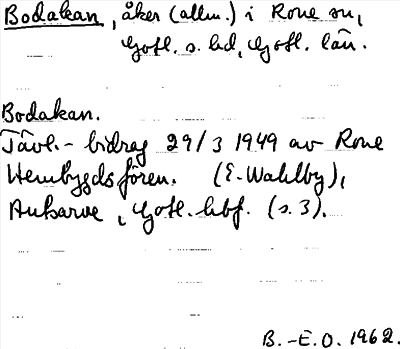 Bodakan, åker (allm.) i Rone sn,
Gotl. s. hd, Gotl. län.
Bodakan.
Tävl.-bidrag 29/3 1949 av Rone
Hembygdsfören. (E. Wahlby),
Autsarve, Gotl. hbf. (s. 3).
B.-E.O. 1962.